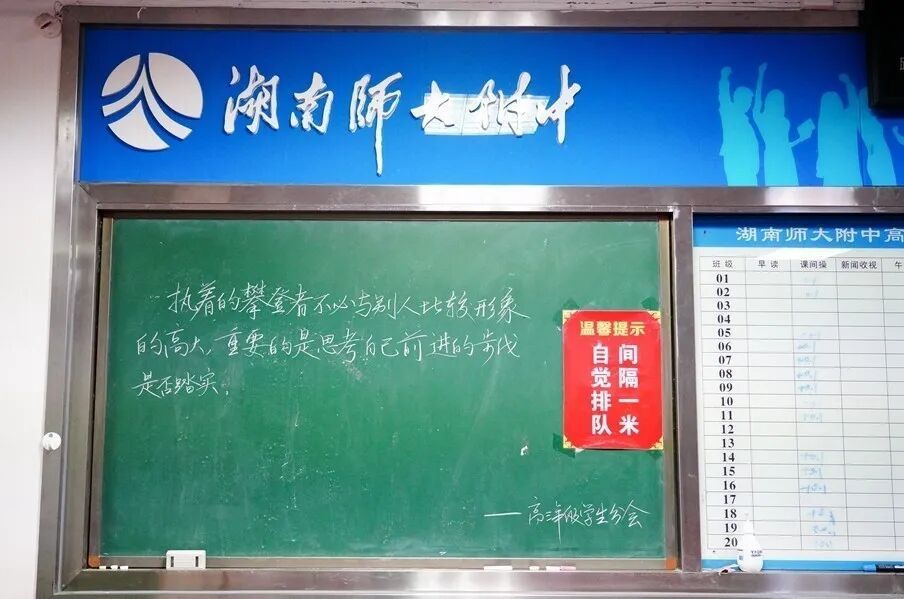 湖南师大附中
执着的攀登者不必与别人比较形象
的高大,重要的是思考自己前进的步伐
是否踏实。
——高三年级学生分会
温馨提示
间隔一米
自觉排队
湖南师大附中高
班级 早读 课间操 新闻收视 午
01
02
03
04
05
06
07
08
09
10
11
12
13
14
15
16
17
18
19
20